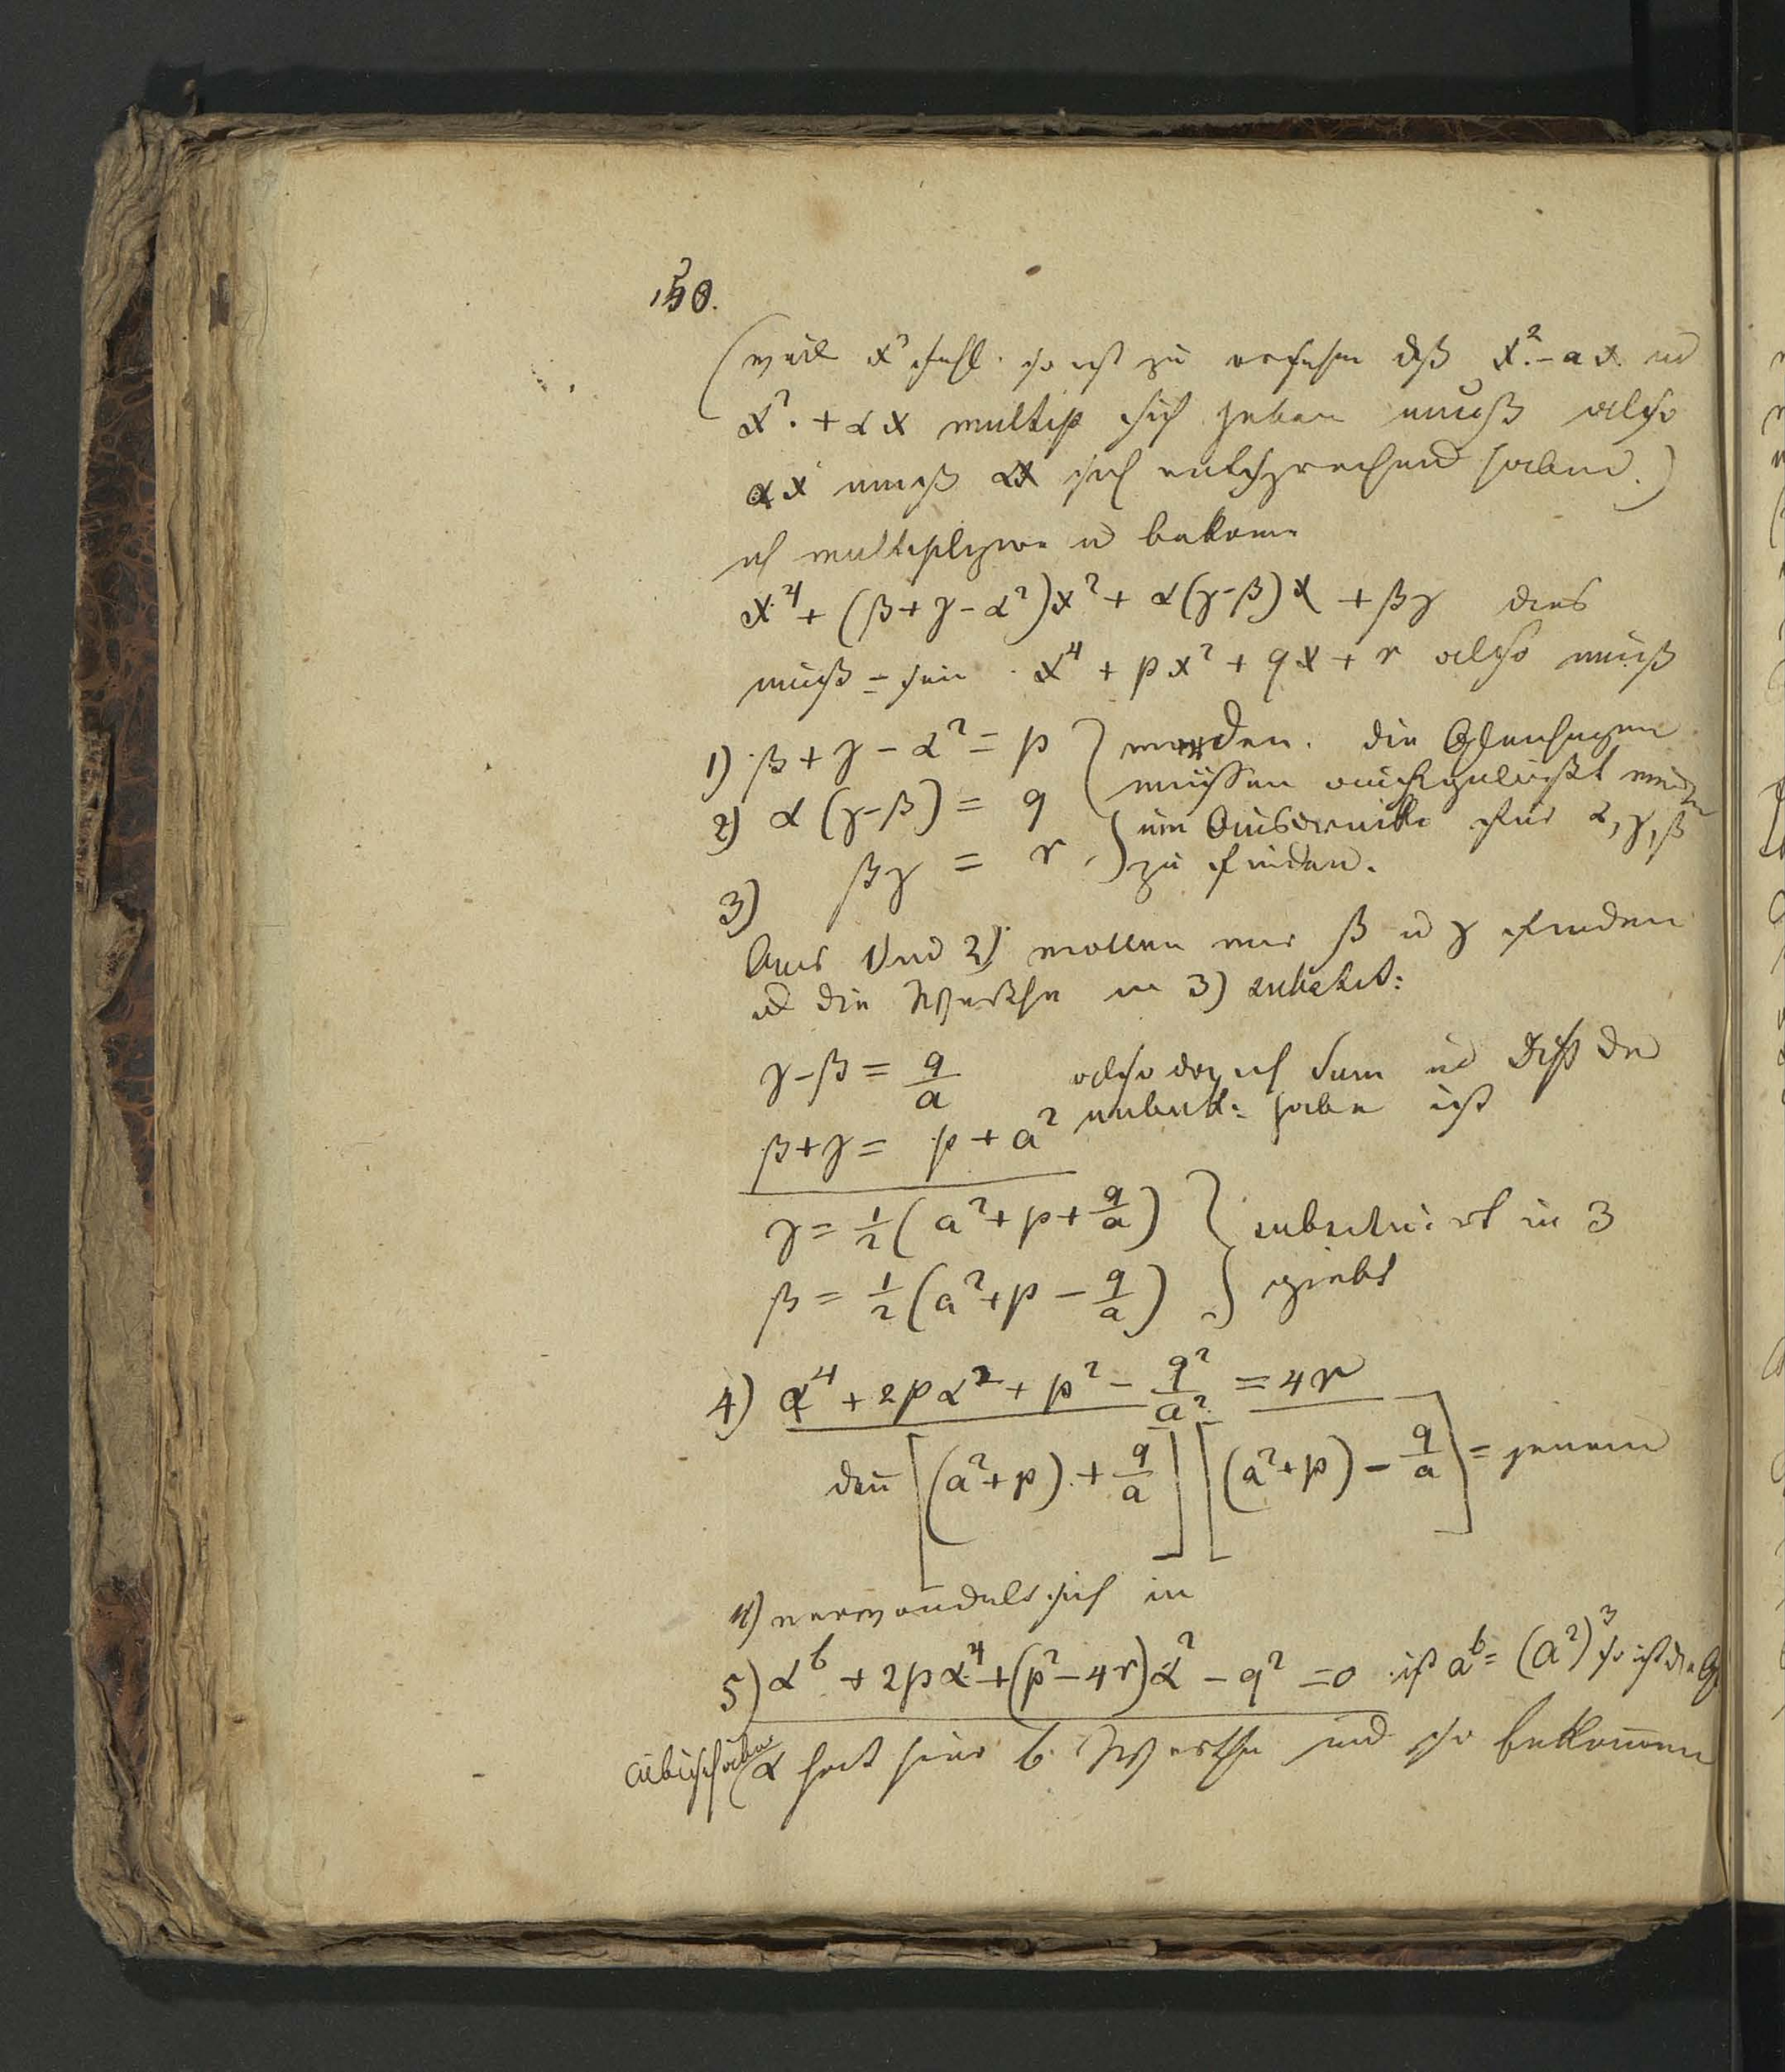 150.
(weil x³ fehlt so ist zu ersehen daß x² - αx und
x² + αx multip sich heben muß also
αx muß αx sich entsprechend haben.)
ich multiplizire u bekome
x⁴ + (β+γ-α²)x² + α(γ-β)x + βγ dies
muß = sein x⁴ + px² + qx + r also muß
1) β + γ - α² = p } werden. die Gleichungen
2) α(γ-β) = q müssen aufgelößt werden
3) βγ = r } um Ausdrücke für α, γ, β
zu finden.
Aus 1) und 2) wollen wir β u γ finden
u die Werthe in 3) substit:
γ-β = q/a also da ich Sum und Diff der
β+γ = p + a² unbek: habe ist
γ = 1/2 (a² + p + q/a) } substituirt in 3
β = 1/2 (a² + p - q/a) } giebt
4) α⁴ + 2pα² + p² - q²/a² = 4r
deñ [(a²+p) + q/a] [(a²+p) - q/a] = jenem
4) verwandelt sich in
5) α⁶ + 2pα⁴ + (p²-4r)α² - q² = 0 ist a⁶ = (a²)³ so ist die Gl
cubisch aber (α hat hier 6 Werthe und so bekom̄en